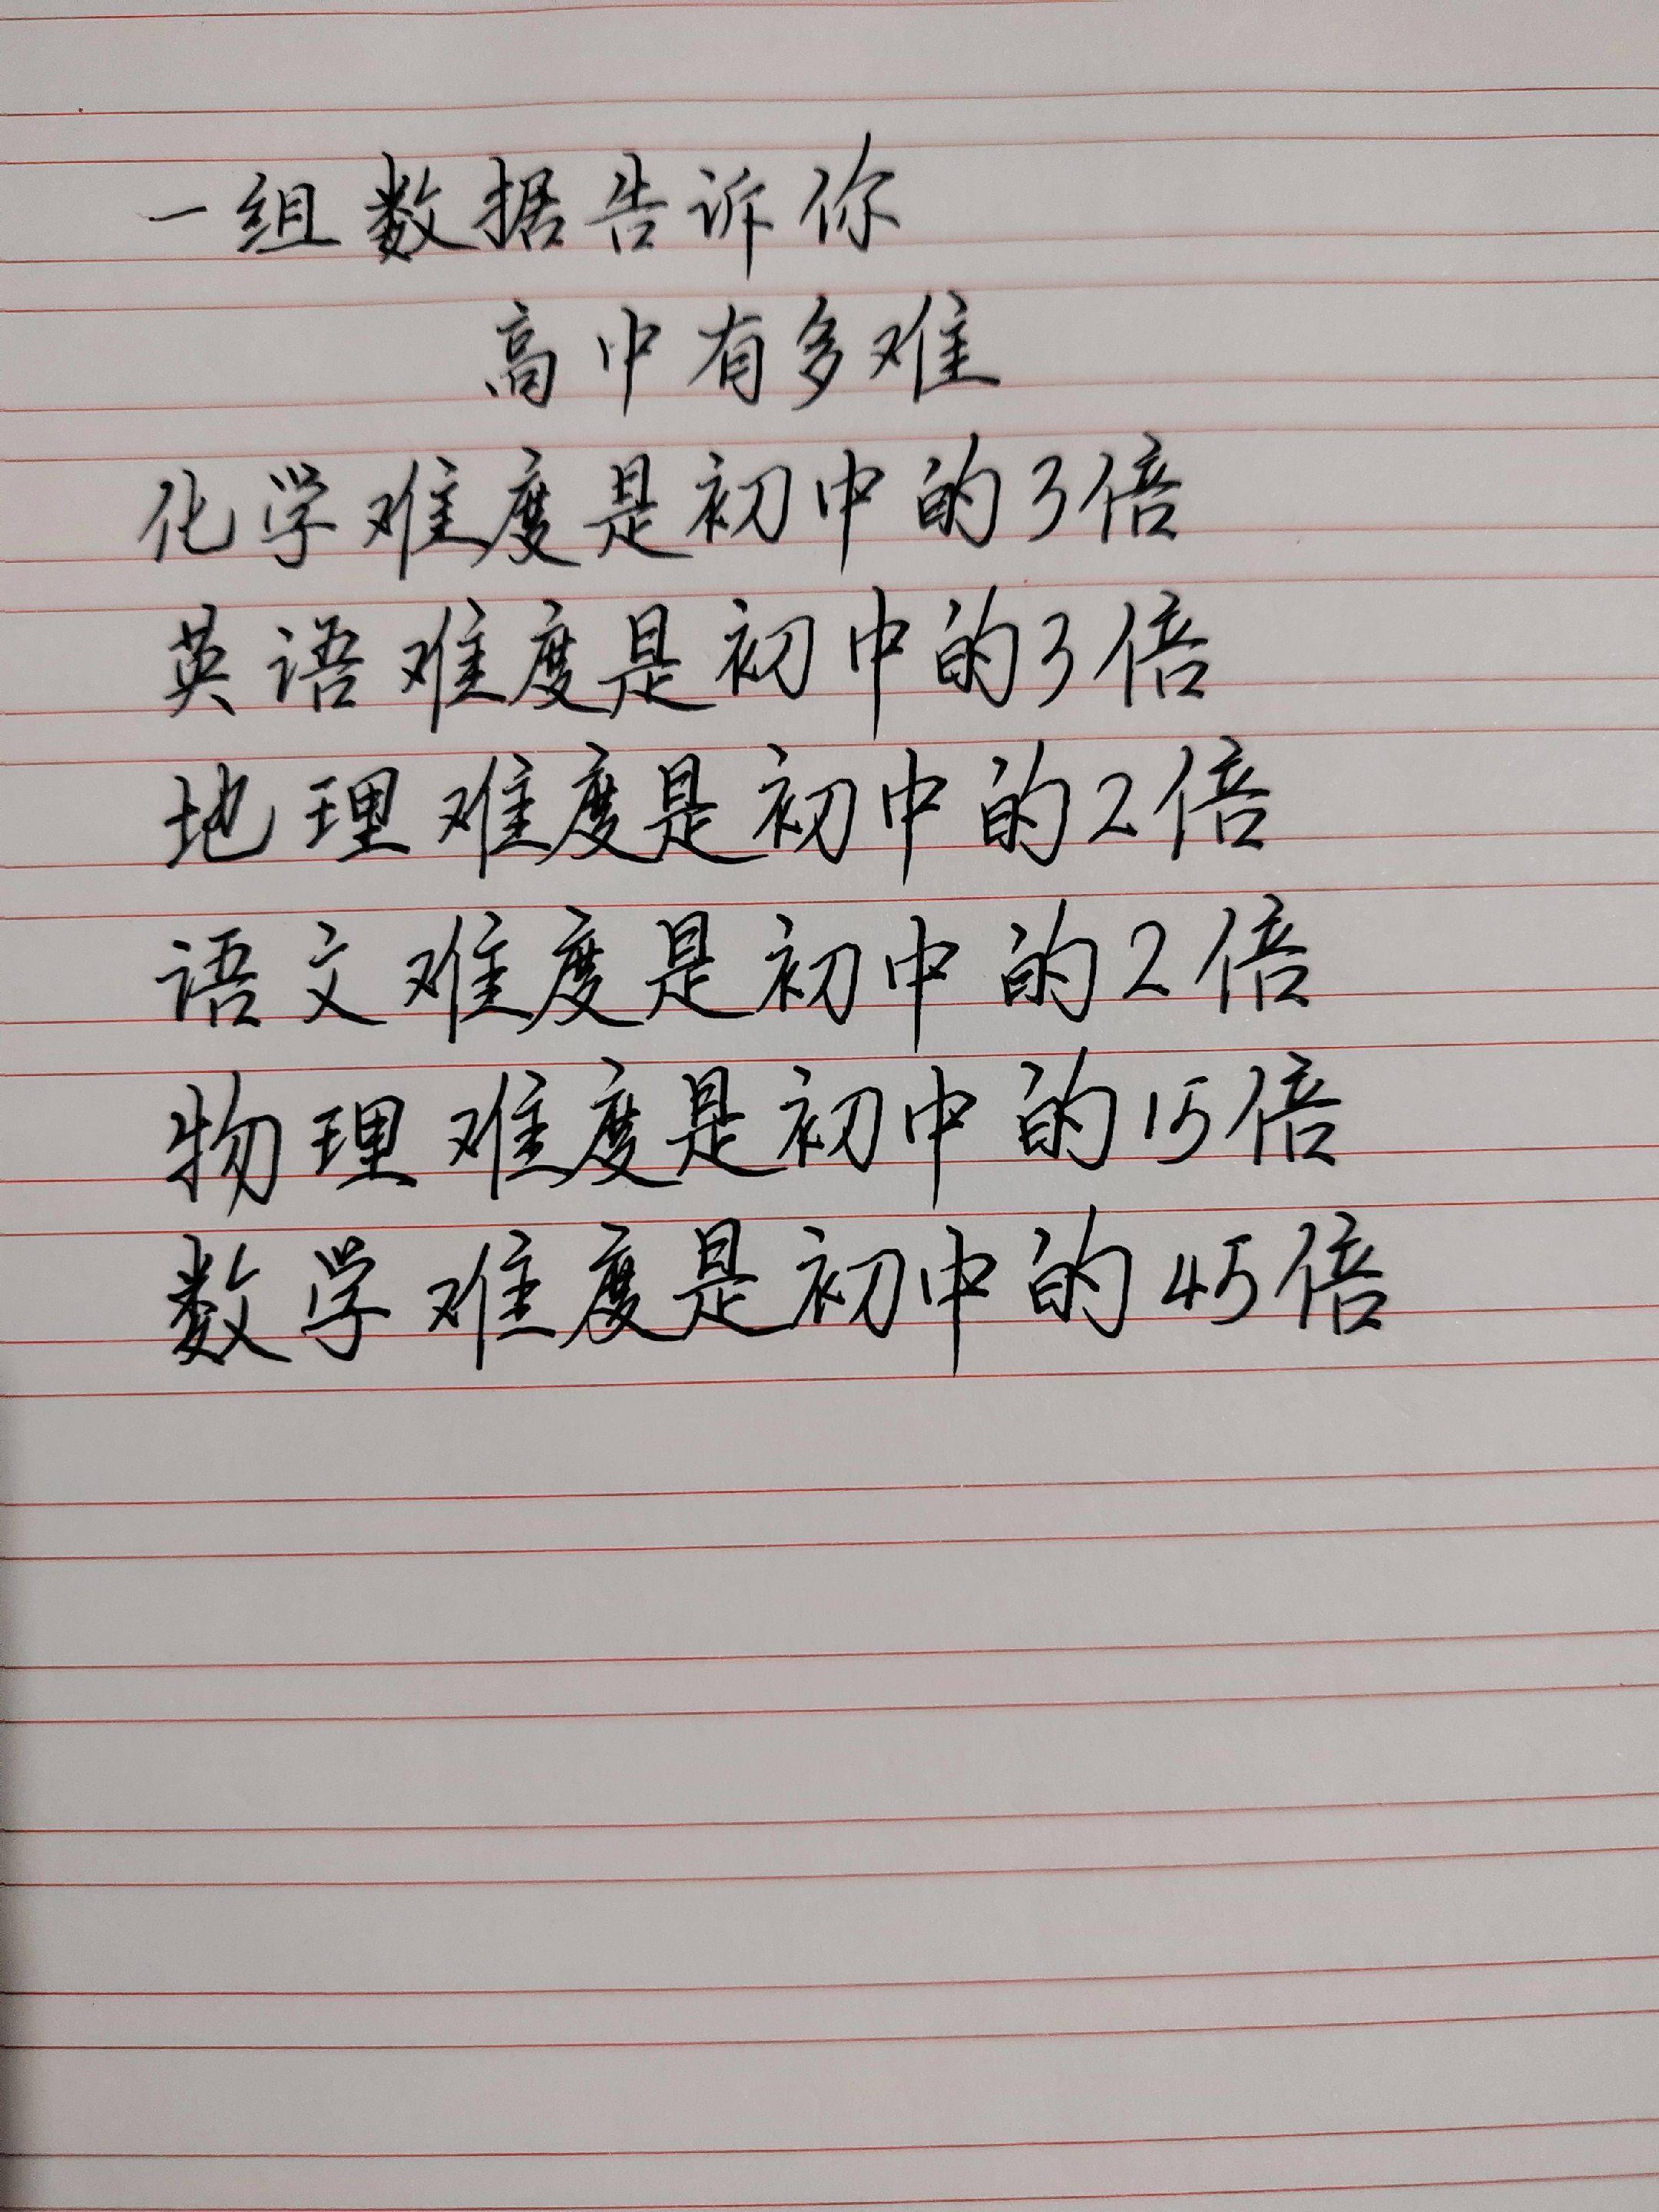 一组数据告诉你
高中有多难
化学难度是初中的3倍
英语难度是初中的3倍
地理难度是初中的2倍
语文难度是初中的2倍
物理难度是初中的15倍
数学难度是初中的45倍